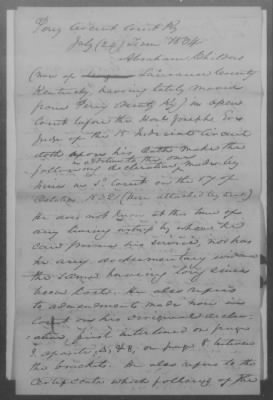 Perry Circuit Court Ky
July (24) Term 1834
Abraham Childers
(now of Lawrance County
Kentucky, having lately moved
from Perry County Ky) in open
Court before the Hon. Joseph Eve
Judge of the 15 Judicial Circuit
doth upon his Oath make the
in addition to this own
following declaration, made by
him in sd Court on the 17 of
October, 1832 (here attached
He does not know at this time of
any living witness by whom he
can prove his service, nor has
he any documentary evidence
the same having long since
been lost. He also refers
to amendments made now in
Court on his original declar-
ation, first interlined on pages
3, a part of, & 8, on page 8 between
the brackets. He also refers to the
Certificate which following of the